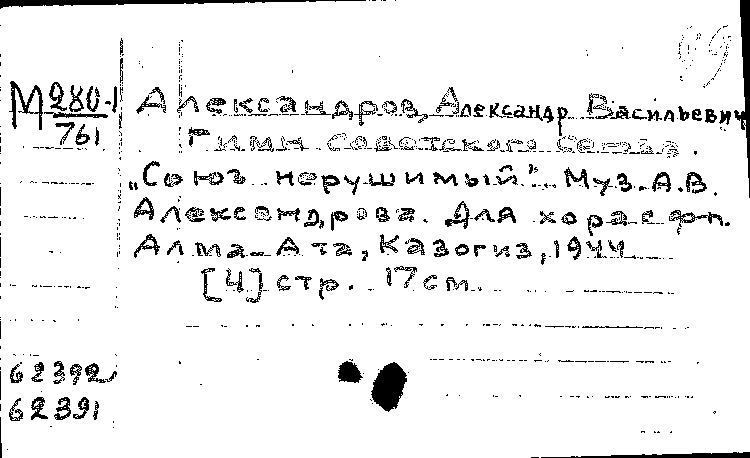 99
М 280-1
761
Александров, Александр Васильевич
Гимн Советского Союза.
„Союз нерушимый". Муз. А.В.
Александрова. Для хора с ф-п.
Алма-Ата, Казогиз, 1944
[4] стр. 17 см.
62392
62391